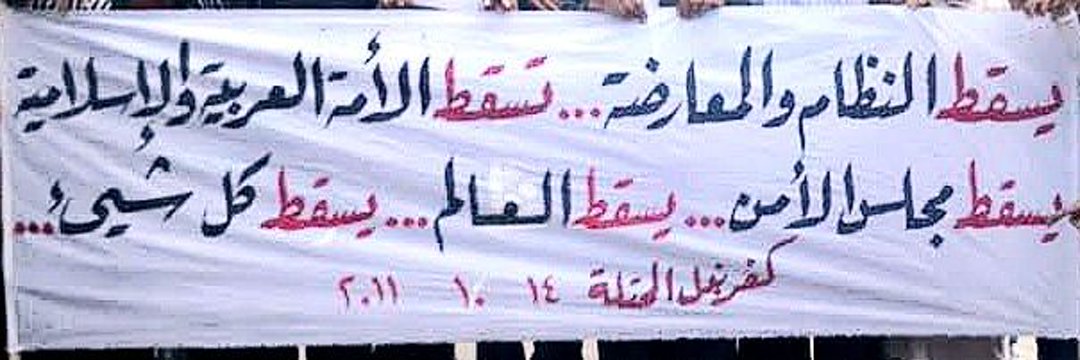 يسقط النظام والمعارضة... تسقط الأمة العربية والإسلامية
يسقط مجلس الأمن... يسقط العالم... يسقط كل شيئ...
كفرنبل المحتلة ١٤ ١٠ ٢٠١١